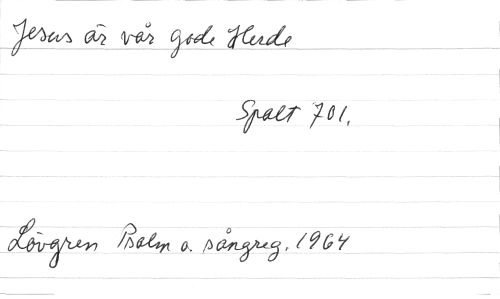 Jesus är vår gode Herde
Spalt 701.
Lövgren Psalm o. sångreg. 1964